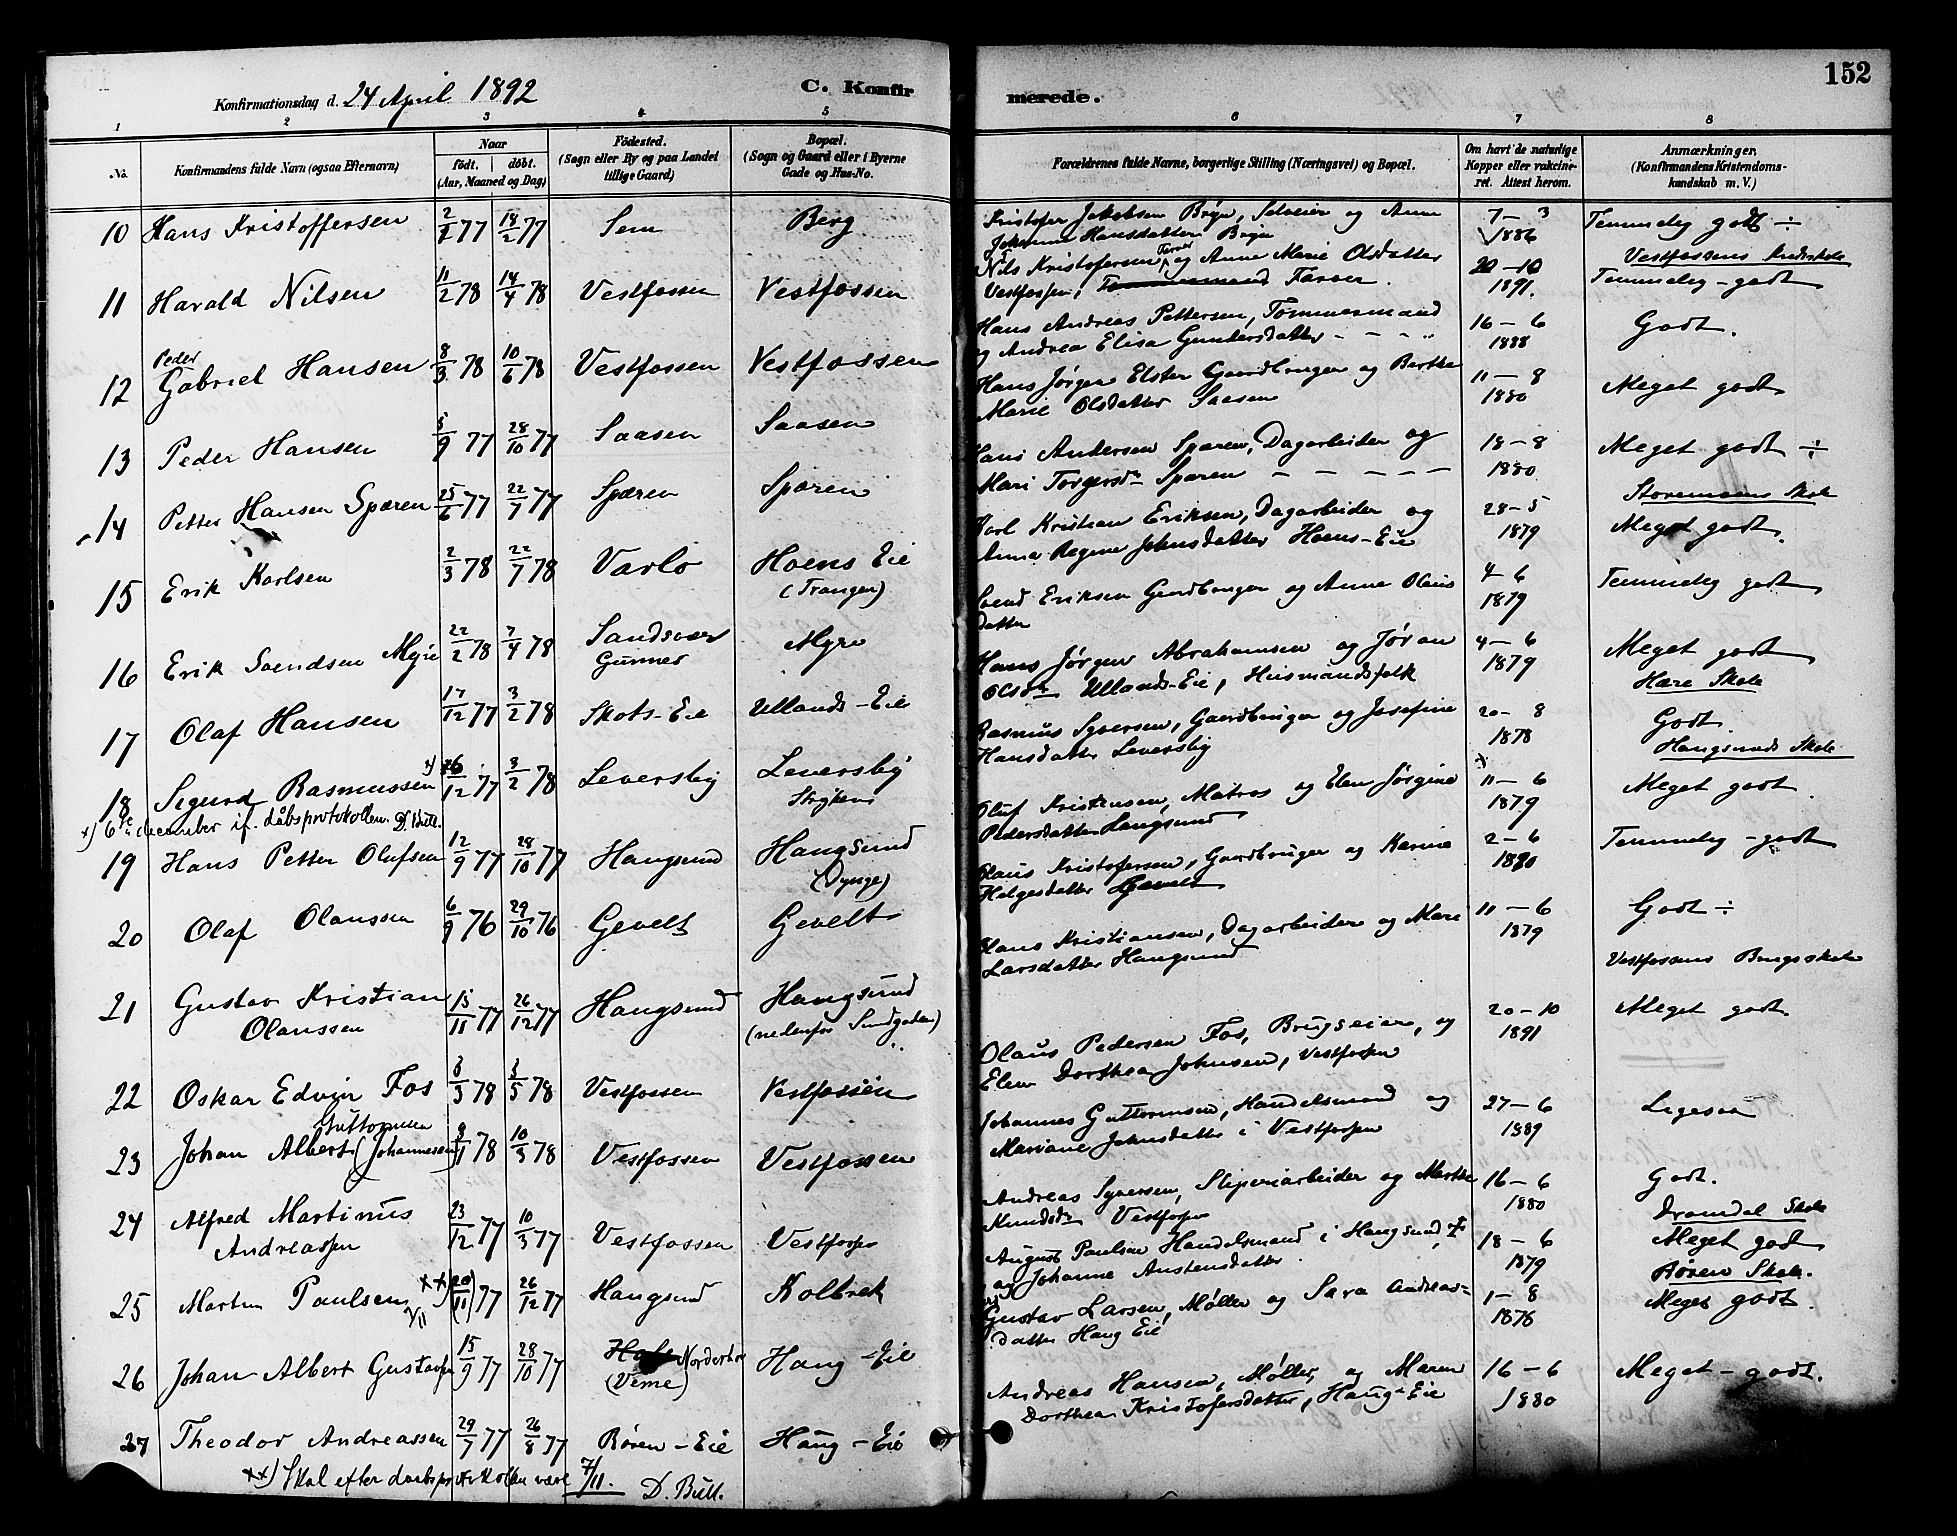 Konfirmationsdag d. 24 April 1892
C. Konfir
1 2 3 4 5
No.
Konfirmandens fulde Navn (ogsaa Efternavn)
Naar
födt. döbt.
(Aar, Maaned og Dag)
Födested.
(Sogn eller By og paa Landet
tillige Gaard)
Bopæl.
(Sogn og Gaard eller i Byerne
Gade og Hus-No.
10 Hans Kristoffersen 77 18/2 77 Sem Berg
11 Harald Nilsen 11/2 78 14/4 78 Vestfossen Vestfossen
Peder
12 Gabriel Hansen 8/3 78 10/6 78 Vestfossen Vestfossen
13 Peder Hansen 5/9 77 28/10 77 Saasen Saasen
14 Petter Hansen Spæren 25/6 77 22/7 77 Spæren Spæren
15 Erik Karlsen 2/3 78 22/7 78 Varlo Hoens Eie
(Trangen)
16 Erik Svendsen Myre 22/2 78 7/4 78 Sandsvær Myre
Gunnes
17 Olaf Hansen 17/12 77 3/2 78 Skots-Eie Ullands-Eie
18 Sigurd Rasmussen x) 26/12 77 3/2 78 Leversby Leversby
Stryken
x) 6te december if. dåbsprotokollen. D. Bull.
19 Hans Petter Olufsen 12/9 77 28/10 77 Haugsund Haugsund
(Dynge)
20 Olaf Olaussen 6/9 76 29/10 76 Gevelt Gevelt
21 Gustav Kristian 15/11 77 26/12 77 Haugsund Haugsund
Olaussen (nedenfor Sundgaden)
22 Oskar Edvin Fos 3/3 78 5/5 78 Vestfossen Vestfossen
Guttormsen
23 Johan Albert (Johannesen) 9/1 78 10/3 78 Vestfossen Vestfossen
24 Alfred Martinus 23/12 77 10/3 77 Vestfossen Vestfossen
Andreassen
25 Martin Paulsen xx) (20/11) 77 26/12 77 Haugsund Kolbræk
7/11
26 Johan Albert Gustavsen 15/9 77 28/10 77 Norderhov Haug-Eie
(Veme)
27 Theodor Andreassen 29/7 77 26/8 77 Røren-Eie Haug-Eie
xx) Skal efter daabsprotokollen være 7/11. D. Bull.
merede.
152
6 7 8
Forældrenes fulde Navne, borgerlige Stilling (Næringsvei) og Bopæl.
Om havt de naturlige
Kopper eller vakcine-
ret. Attest herom.
Anmærkninger,
(Konfirmandens Kristendoms-
kundskab m. V.)
Kristofer Jakobsen Bryn, Selveier og Anne 7-3 Temmelig godt ÷
Johanne Hansdatter Bryn 1886
Nils Kristofersen og Anne Marie Olsdatter 20-10 Vestfossens Kredsskole
Vestfossen, Tømmermand Farver. 1891. Temmelig-godt
Hans Andreas Pettersen, Tømmermand 16-6 Godt.
og Andrea Elisa Gundersdatter - - - " 1888
Hans Jørgen Elster Gaardbruger og Berthe 11-8 Meget godt
Marie Olsdatter Saasen 1880
Hans Andersen Sparen, Dagarbeider og 18-8 Meget godt ÷
Mari Torgersdr Sparen - - - - - 1880
Storemoens Skole
Karl Kristian Eriksen, Dagarbeider og 28-5 Meget godt.
Anna Regine Johnsdatter Hoens-Eie 1879
Svend Eriksen Gaardbruger og Anne Olaus 4-6 Temmelig godt
datter 1879
Hans Jørgen Abrahamsen og Jøran 4-6 Meget godt
Olsdr Ullands-Eie, Husmandsfolk 1879 Hære Skole
Rasmus Syversen, Gaardbruger og Josefine 20-8 Godt.
Hansdatter Leversby 1878 Haugsunds Skole
Oluf Kristensen, Matros og Elen Jørgine 11-6 Meget godt
Pedersdatter Haugsund 1879
Olaus Kristofersen, Gaardbruger og Karine 2-6 Temmelig-godt
Helgesdatter Gevelt 1880
Olaus Kristiansen, Dagarbeider og Mari 11-6 Godt ÷
Larsdatter Haugsund 1879
Vestfossens Brugsskole
Olaus Pedersen Fos, Brugseier, og 20-10 Meget godt.
Elen Dorthea Johnsen, Vestfossen 1891
Johannes Guttormsen, Handelsmand og 27-6 Ligesaa
Mariane Johnsdatter i Vestfossen 1889
Andreas Syversen, Sliperiarbeider og Marthe 16-6 Godt.
Knudsdr Vestfossen 1880 Dramdal Skole
August Paulsen Handelsmand i Haugsund, 18-6 Meget godt
og Johanne Austensdatter. 1879 Røren Skole.
Gustav Larsen, Møller og Sara Andreas- 1-8 Meget godt.
datter Haug Eie 1878
Andreas Hansen, Møller, og Maren 16-6 Meget-godt.
Dorthea Kristofersdatter, Haug-Eie 1880